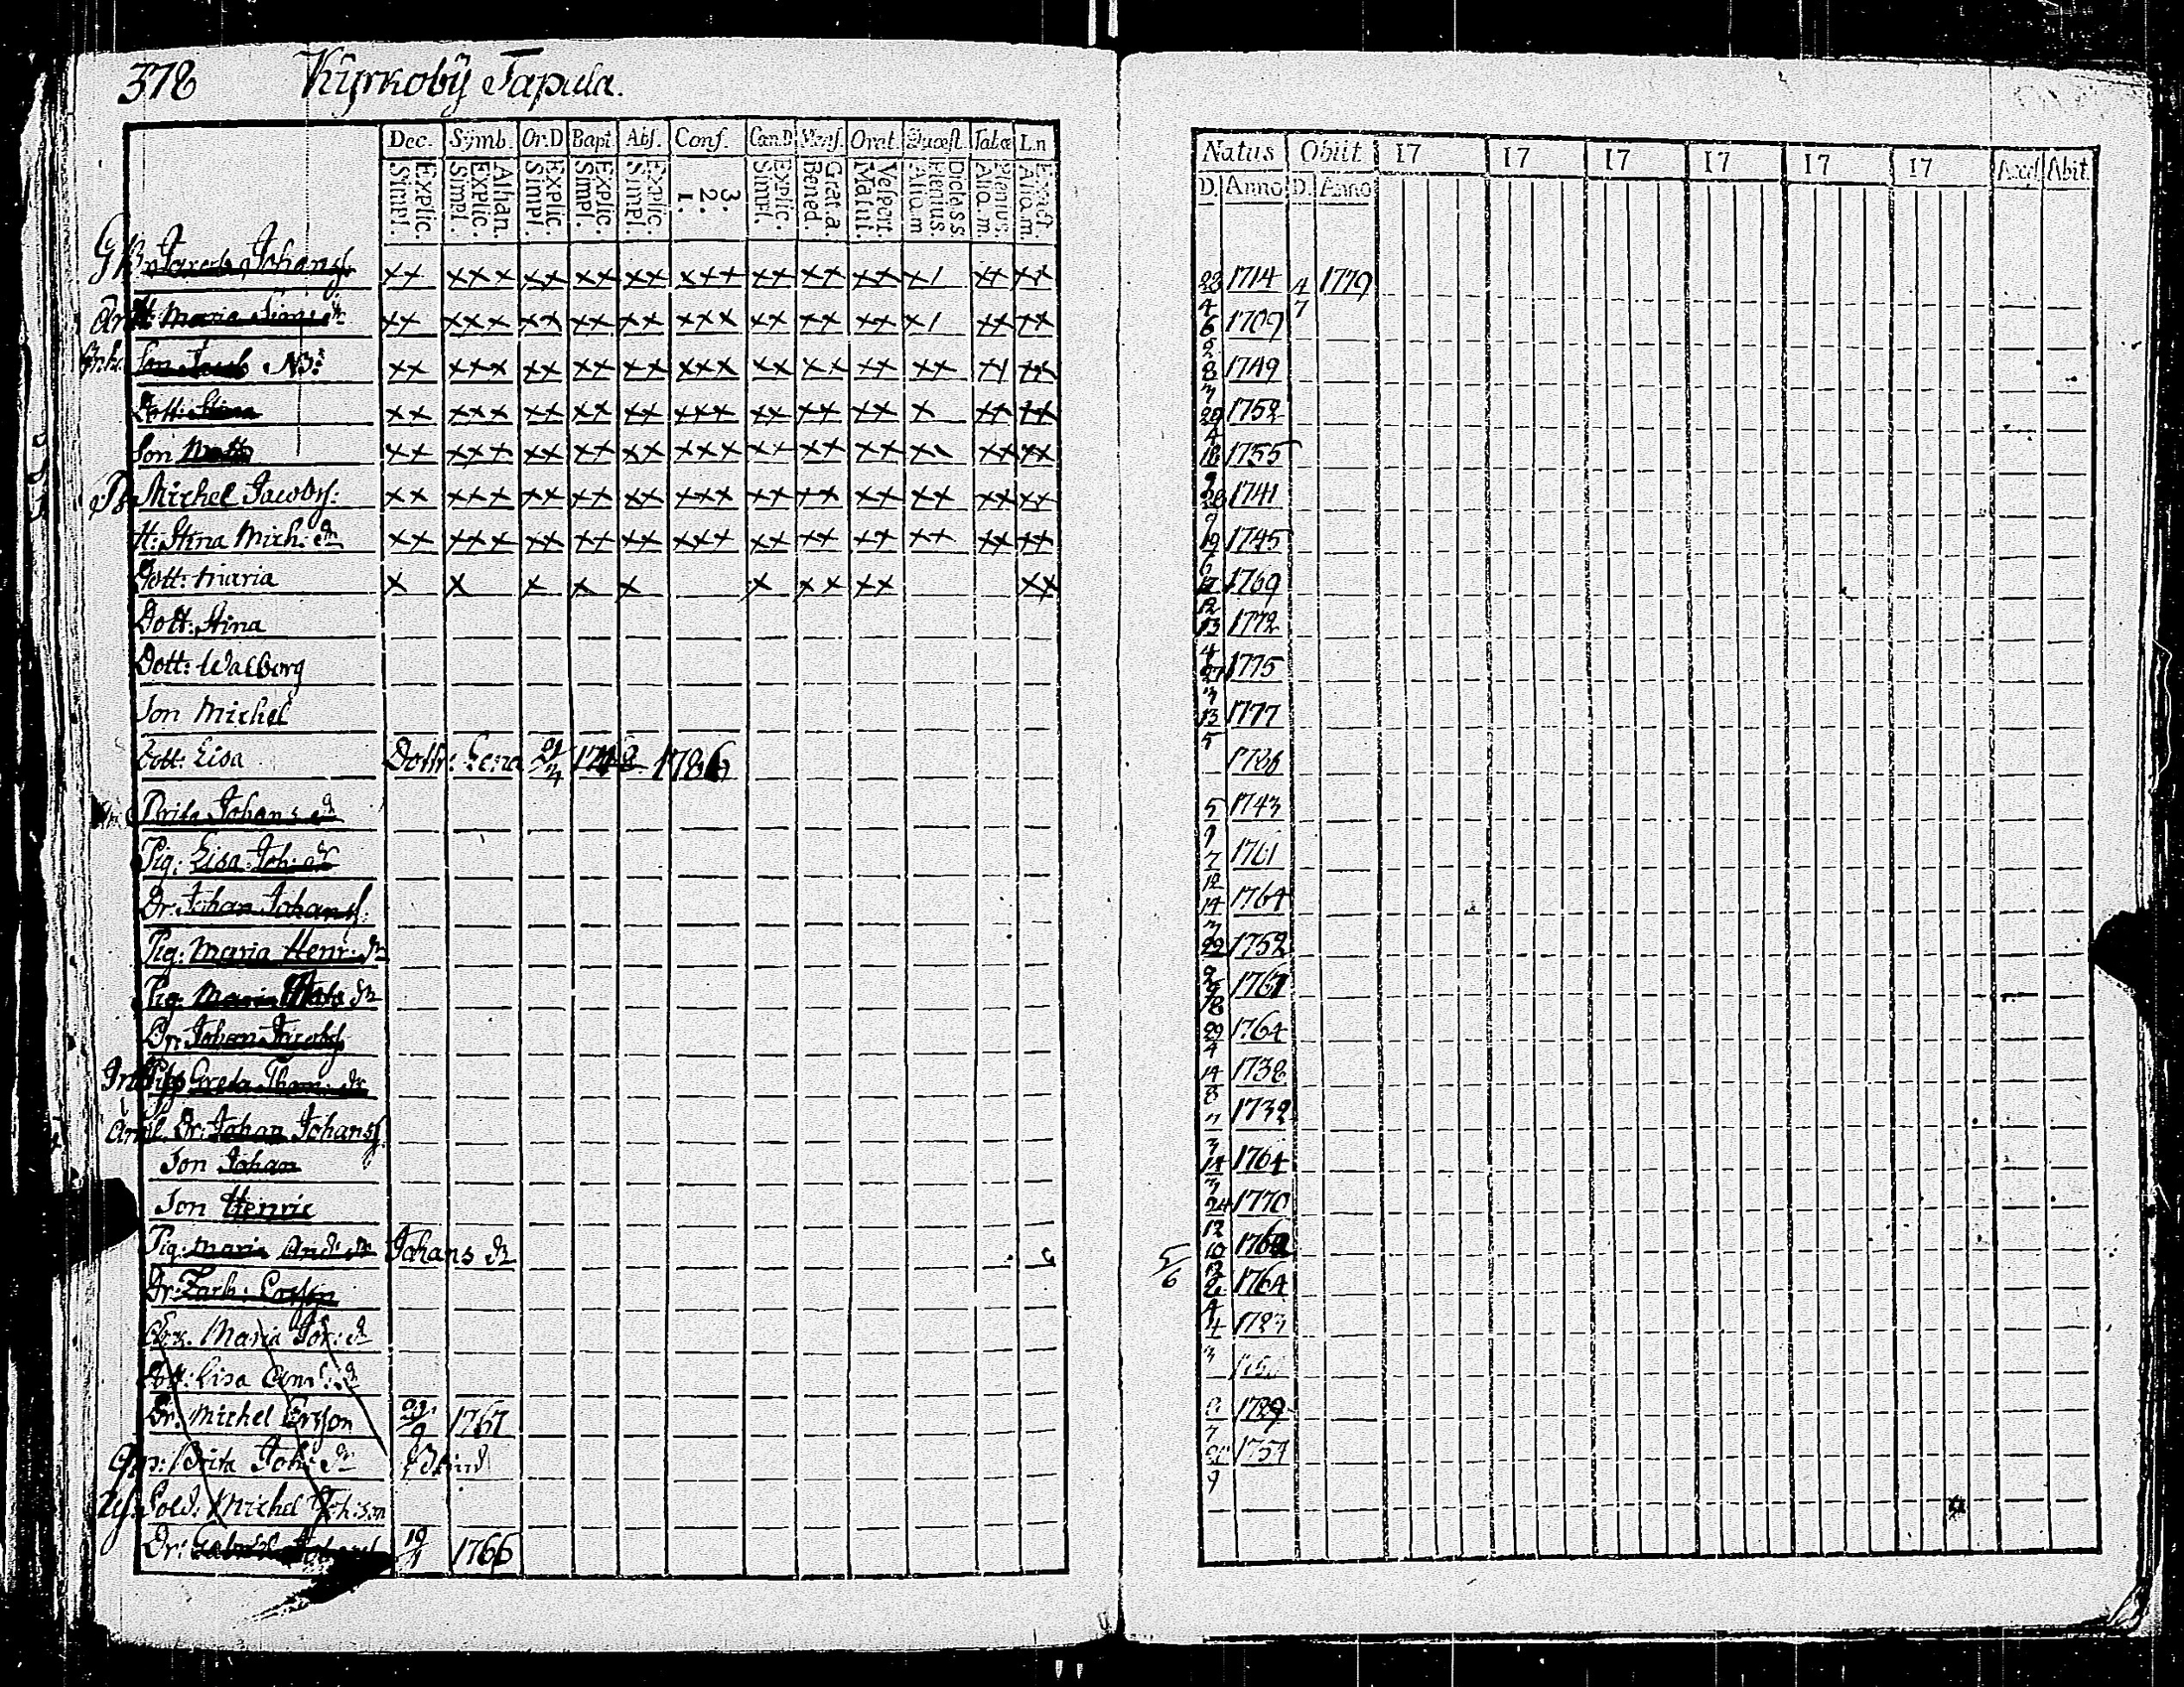 378 Kyrkoby Tapula.
Dec. Symb. Or.D Bapt. Abs. Conf. Can.D Mens. Orat. Quæst. Tabœ Ln
Explic. Simpl. Athan. Explic. Simpl. Explic. Simpl. Explic. Simpl. Explic. Simpl. 3. 2. 1. Explic. Simpl. Grat.a. Bened. Vesper. Matut. Dicta S.S. Plenius. Alio.m Plenius. Alio.m. Exact. Alio.m.
Natus Obiit 17 17 17 17 17 17 Access Abit
D. Anno D. Anno
Jacob Johanss xx xxx xx xx xx xxx xx xx xx x/ xx xx 22/4 1714 4/7 1779
H: Maria Sim: dr xx xxx xx xx xx xxx xx xx xx x/ xx xx 6/2 1709
Son Jacob NB: xx xxx xx xx xx xxx xx xx xx xx xx 8/7 1749
Dott: Stina xx xxx xx xx xx xxx xx xx xx x xx xx 29/4 1752
Son Matts xx xxx xx xx xx xxx xx xx xx xx xx 18/9 1755
Michel Jacobs: xx xxx xx xx xx xxx xx xx xx xx xx xx 28/9 1741
H: Stina Mich: dr xx xxx xx xx xx xxx xx xx xx xx xx xx 19/6 1745
Dott: Maria x x x x x x xx xx xx 17/12 1769
Dott: Stina 13/4 1772
Dott: Walborg 27/3 1775
Son Michel 13/5 1777
Dott: Lisa Dottr: Lena 21/4 1786 1786
Brita Johans dr 5/9 1743
Pig: Lisa Joh: dr 7/12 1761
Dr: Johan Johanss: 14/3 1764
Pig: Maria Henr: dr 22/2 1752
Pig: Maria Mats dr 1767
Dr: Johan Jacobs 29/4 1764
Greta Thom: dr 14/8 1738
Dr: Johan Johanss 7/3 1732
Son Johan 14/3 1764
Son Henric 24/12 1770
Pig: Maria And: dr Johans dr 5/6 10/12
Dr: Zach: 1764
Maria Jör: dr 4/3 1723
Dott: Lisa And: dr
Dr: Michel Ersson 1767 1789
Brita Joh: dr Blind 1757
Sold: Michel Joh:son
Dr: 19/1 1766